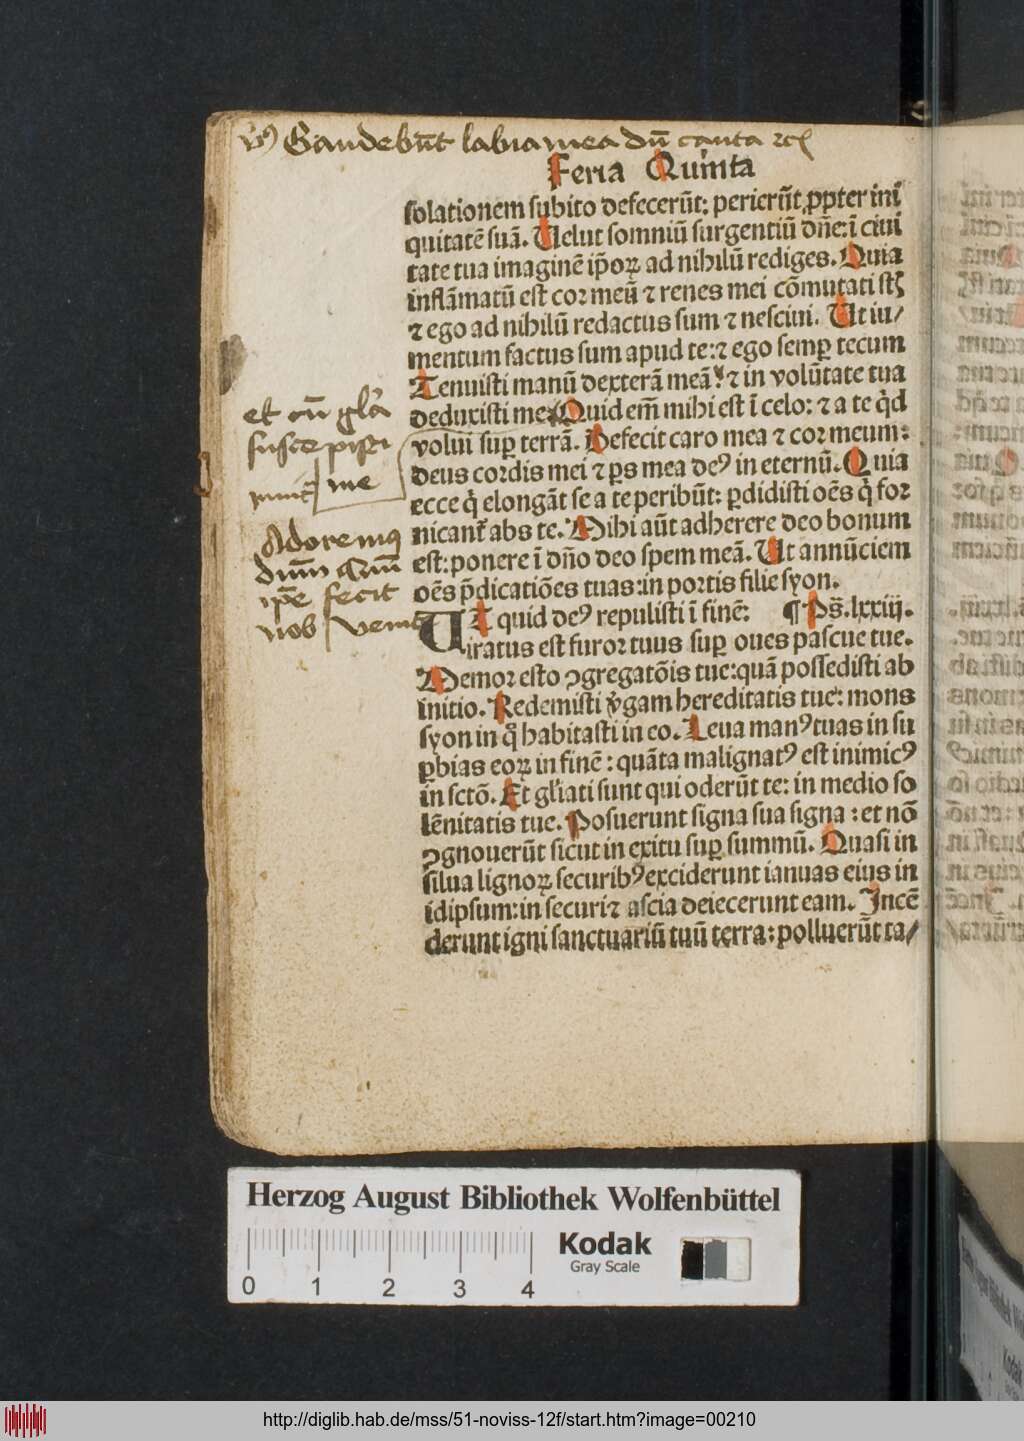 Gaudebūt labia mea dū canta
Feria Quinta
solationem subito defecerūt: perierūt ꝓpter ini
quitatē suā. Uelut somniū surgentiū dn̄e: ī ciui
tate tua imaginē ip̄oꝝ ad nihilū rediges. Quia
inflāmatū est cor meū ⁊ renes mei cōmutati st̄
⁊ ego ad nihilū redactus sum ⁊ nesciui. Ut iu/
mentum factus sum apud te: ⁊ ego semꝑ tecum
Tenuisti manū dexterā meā: ⁊ in volūtate tua
deduxisti me Quid em̄ mihi est ī celo: ⁊ a te qd̄
et cū gl̄a
suscepisti
me
volui suꝑ terrā. Defecit caro mea ⁊ cor meum:
deus cordis mei ⁊ ꝑs mea deꝰ in eternū. Quia
ecce q̄ elongāt se a te peribūt: ꝑdidisti oēs q̄ for
nicant̄ abs te. Mihi aūt adherere deo bonum
est: ponere ī dn̄o deo spem meā. Ut annūciem
oēs p̄dicatiōes tuas: in portis filie syon.
Adoremus
dn̄m qm̄
ip̄e fecit
nos venite
UT quid deꝰ repulisti ī finē: ¶ Ps̄. lxxiij.
iratus est furor tuus suꝑ oues pascue tue.
Memor esto ꝯgregatōis tue: quā possedisti ab
initio. Redemisti v̄gam hereditatis tue: mons
syon in q̊ habitasti in eo. Leua manꝰ tuas in su
ꝑbias eoꝝ in finē: quāta malignatꝰ est inimicꝰ
in sctō. Et gl̄iati sunt qui oderūt te: in medio so
lēnitatis tue. Posuerunt signa sua signa: et nō
ꝯgnouerūt sicut in exitu suꝑ summū. Quasi in
silua lignoꝝ securibꝰ exciderunt ianuas eius in
idipsum: in securi ⁊ ascia deiecerunt eam. Incē
derunt igni sanctuariū tuū terra: polluerūt ta/
Herzog August Bibliothek Wolfenbüttel
0 1 2 3 4
Kodak
Gray Scale
http://diglib.hab.de/mss/51-noviss-12f/start.htm?image=00210